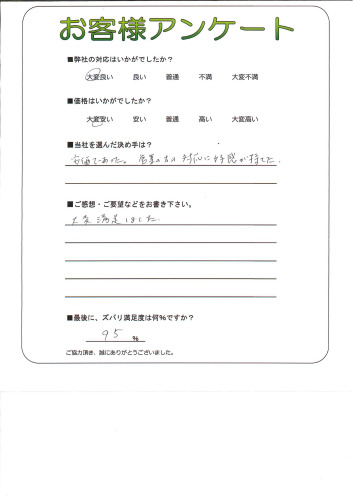 お客様アンケート
■弊社の対応はいかがでしたか?
大変良い 良い 普通 不満 大変不満
■価格はいかがでしたか?
大変安い 安い 普通 高い 大変高い
■当社を選んだ決め手は?
安価であった。営業の方の対応に好感が持てた.
■ご感想・ご要望などをお書き下さい。
大変満足しました.
■最後に、ズバリ満足度は何%ですか?
95 %
ご協力頂き、誠にありがとうございました。